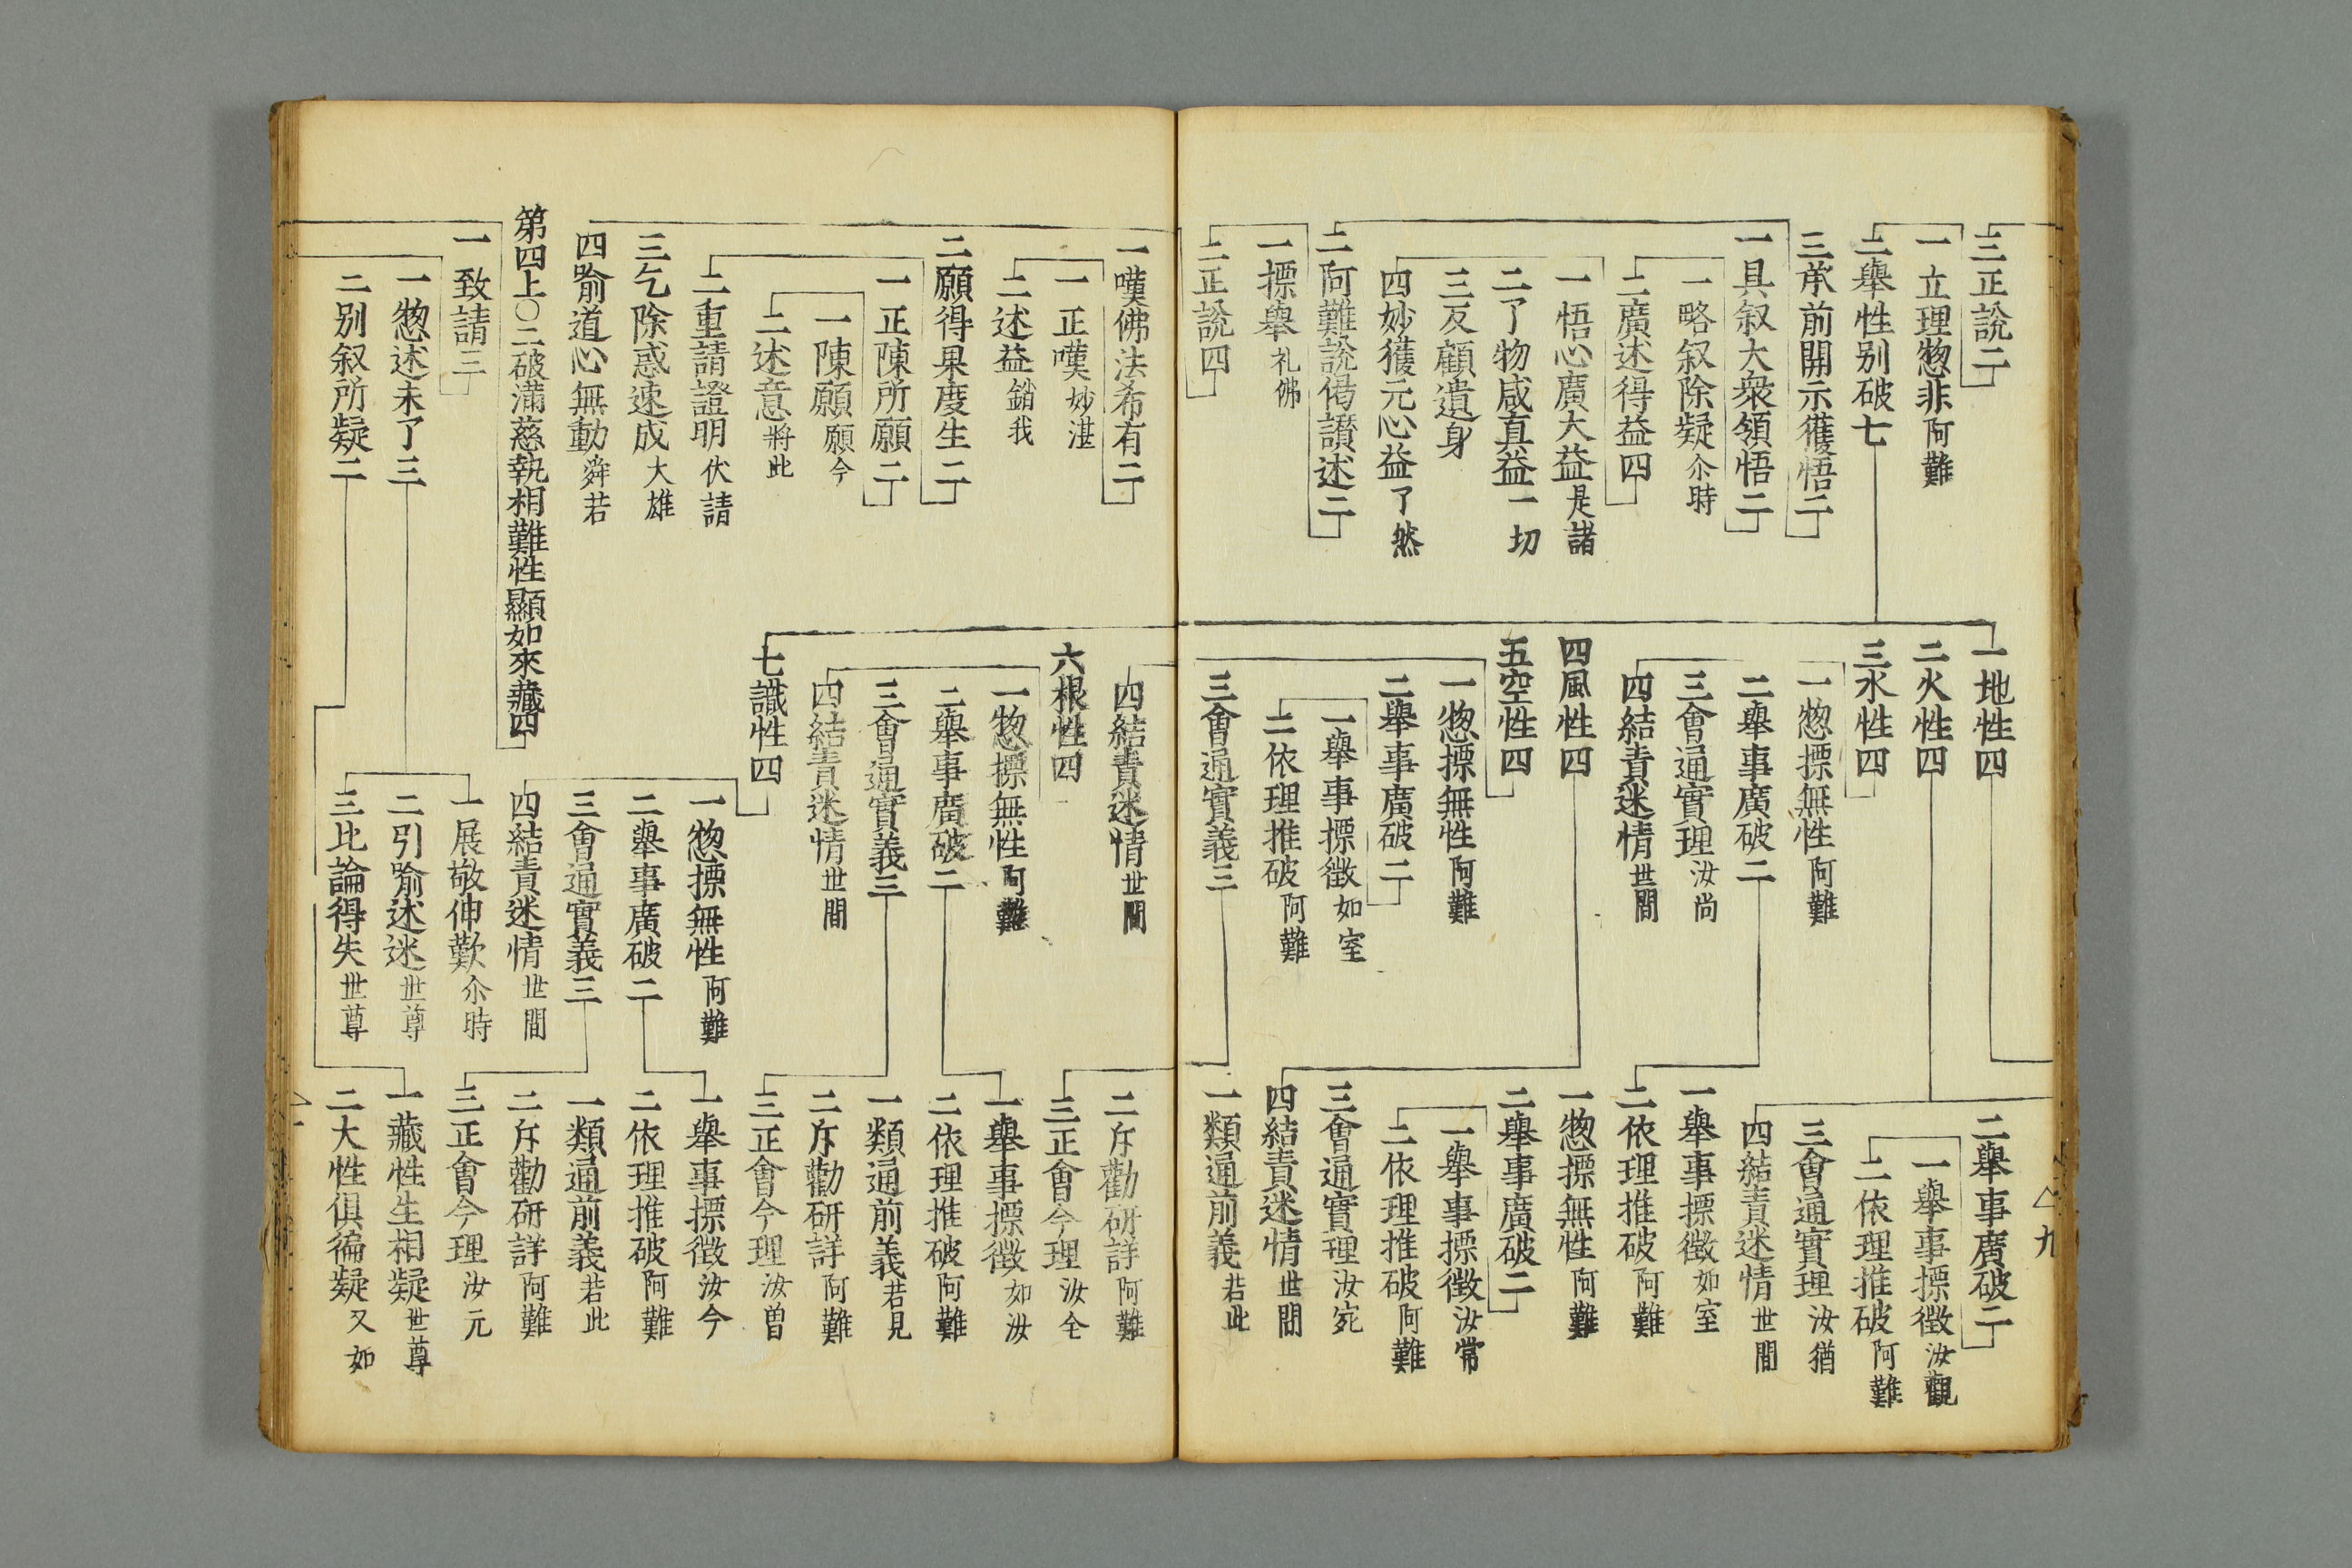 三正說二
一立理惣非 阿難
二舉性别破七
三承前開示獲悟二
一具叙大衆領悟二
一略叙除疑 尒時
二廣述得益四
一悟心廣大益 是諸
二了物咸真益 一切
三反顧遺身
四妙獲元心益 了然
二阿難說偈讃述二
一摽舉 礼佛
二正說四
一地性四
二火性四
三水性四
一惣摽無性 阿難
二舉事廣破二
三會通實理 汝尚
四結責迷情 世間
四風性四
五空性四
一惣摽無性 阿難
二舉事廣破二
一舉事摽徵 如室
二依理推破 阿難
三會通實義三
九
二舉事廣破二
一舉事摽徵 汝觀
二依理推破 阿難
三會通實理 汝猶
四結責迷情 世間
一舉事摽徵 如室
二依理推破 阿難
一惣摽無性 阿難
二舉事廣破二
一舉事摽徵 汝常
二依理推破 阿難
三會通實理 汝宛
四結責迷情 世間
一類通前義 若此
一嘆佛法希有二
一正嘆 妙湛
二述益 銷我
二願得果度生二
一正陳所願二
一陳願 願今
二述意 將此
二重請證明 伏請
三乞除惑速成 大雄
四喻道心無動 舜若
第四上〇二破滿慈執相難性顯如來藏四
一致請三
一惣述未了三
二别叙所疑二
四結責迷情 世間
六根性四
一惣摽無性 阿難
二舉事廣破二
三會通實義三
四結責迷情 世間
七識性四
一惣摽無性 阿難
二舉事廣破二
三會通實義三
四結責迷情 世間
一展敬伸歎 尒時
二引喻述迷 世尊
三比論得失 世尊
二斥勸研詳 阿難
三正會今理 汝全
一舉事摽徵 如汝
二依理推破 阿難
一類通前義 若見
二斥勸研詳 阿難
三正會今理 汝曽
一舉事摽徵 汝今
二依理推破 阿難
一類通前義 若此
二斥勸研詳 阿難
三正會今理 汝元
一藏性生相疑 世尊
二大性俱徧疑 又如